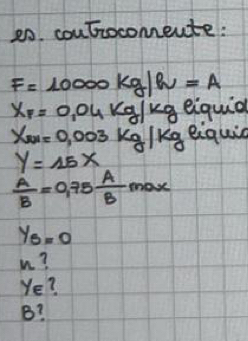 es. controcorrente:
F = 10000 Kg/h = A
XF = 0,04 Kg/Kg liquid
= 0,003 Kg/Kg liquid
Y = 15X
A/B = 0,75 A/B max
YS = 0
n?
YE?
B?